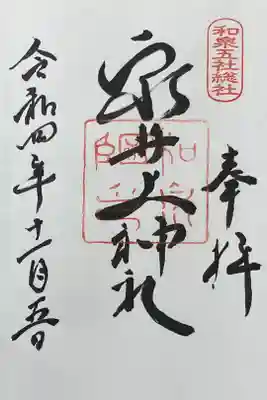 和泉五社総社
奉拝
泉井上神社
令和四年十一月五日